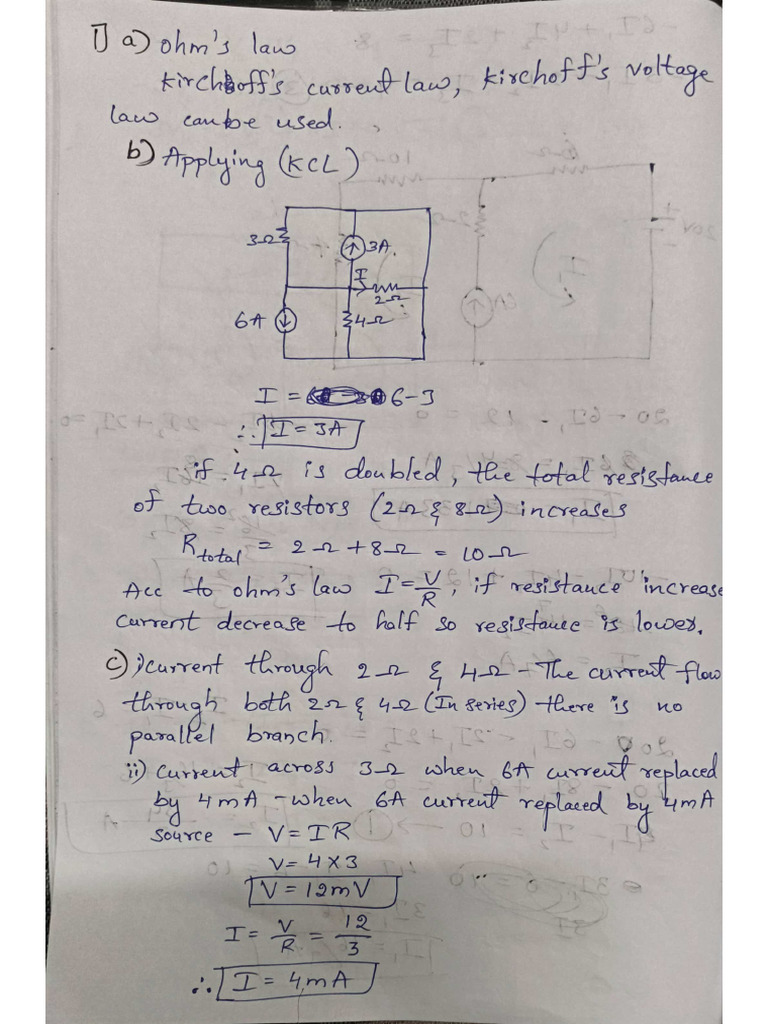 1) a) Ohm's law
Kirchhoff's current law, Kirchoff's voltage
law can be used.
b) Applying (KCL)
3Ω
3A.
I
2Ω
6A
4Ω
I = 6-3
∴ I = 3A
if 4Ω is doubled, the total resistance
of two resistors (2Ω & 8Ω) increases
R total = 2Ω + 8Ω = 10Ω
Acc to ohm's law I = V/R, if resistance increase
current decrease to half so resistance is lower.
c) i) current through 2Ω & 4Ω - The current flow
through both 2Ω & 4Ω (In series) there is no
parallel branch.
ii) current across 3Ω when 6A current replaced
by 4mA - when 6A current replaced by 4mA
source - V = IR
V = 4 x 3
V = 12mV
I = V/R = 12/3
∴ I = 4mA